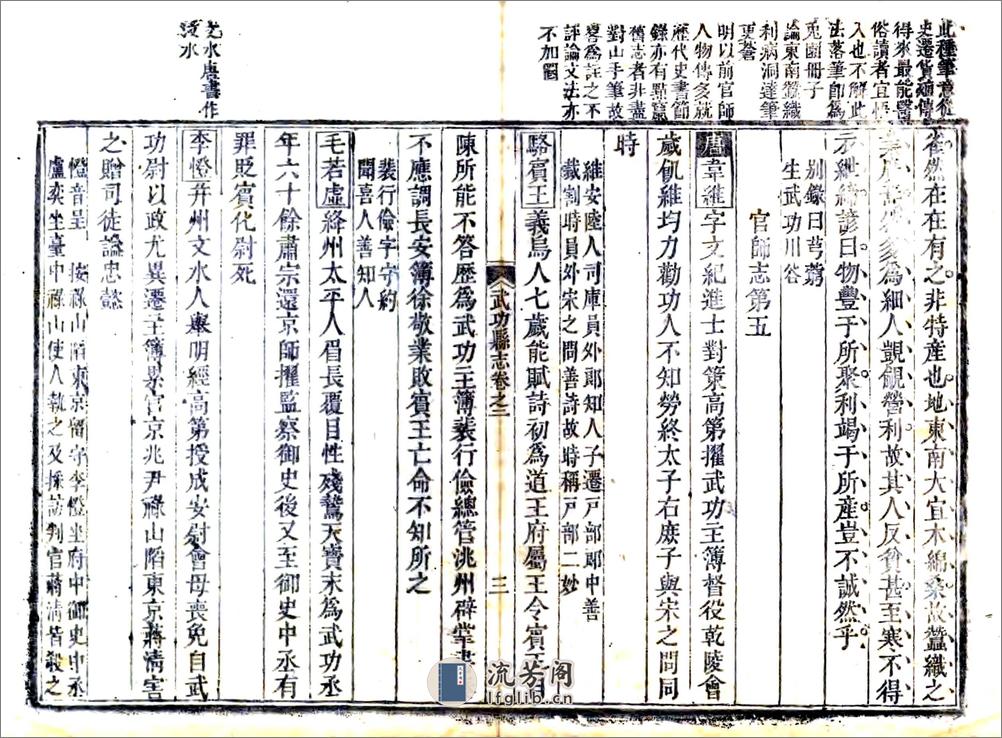 此種筆意從
史遷貨殖傳
得來最能醫
俗讀者宜悟
入也不解此
法落筆卽爲
兎園冊子
論東南蠶織
利病洞達筆
更蒼
明以前官師
人物傳多就
歷代史書節
錄亦有點竄
舊志者非盡
對山手筆故
畧爲註之不
評論文法亦
不加圈
文水唐書作
汶水
雀然在在有之非特産也地東南大宜木綿桑故蠶織之
多爲細人覬覦營利故其人反貧甚至寒不得
示維絺諺曰物豐于所聚利竭于所産豈不誠然乎
別錄曰芎藭
生武功川谷
官師志第五
唐韋維字文紀進士對策高第擢武功主簿督役乾陵會
歲饑維均力勸功人不知勞終太子右庶子與宋之問同
時
維安陸人司庫員外郞知人子遷戸部郞中善
裁割時員外宋之問善詩故時稱戸部二妙
駱賓王義烏人七歲能賦詩初爲道王府屬王令賓王自
陳所能不答歷爲武功主簿裴行儉總管洮州辟掌書
不應調長安簿徐敬業敗賓王亡命不知所之
裴行儉字守約
聞喜人善知人
毛若虛絳州太平人眉長覆目性殘鷙天寶末爲武功丞
年六十餘肅宗還京師擢監察御史後又至御史中丞有
罪貶賓化尉死
李憕幷州文水人舉明經高第授成安尉會母喪免自武
功尉以政尤異遷主簿累官京兆尹祿山陷東京蔣淸害
之贈司徒謚忠懿
憕音呈 按祿山陷東京留守李憕坐府中御史中丞
盧奕坐臺中祿山使人執之及採訪判官蔣淸皆殺之
武功縣志卷之二
三
流芳阁
lfglib.cn